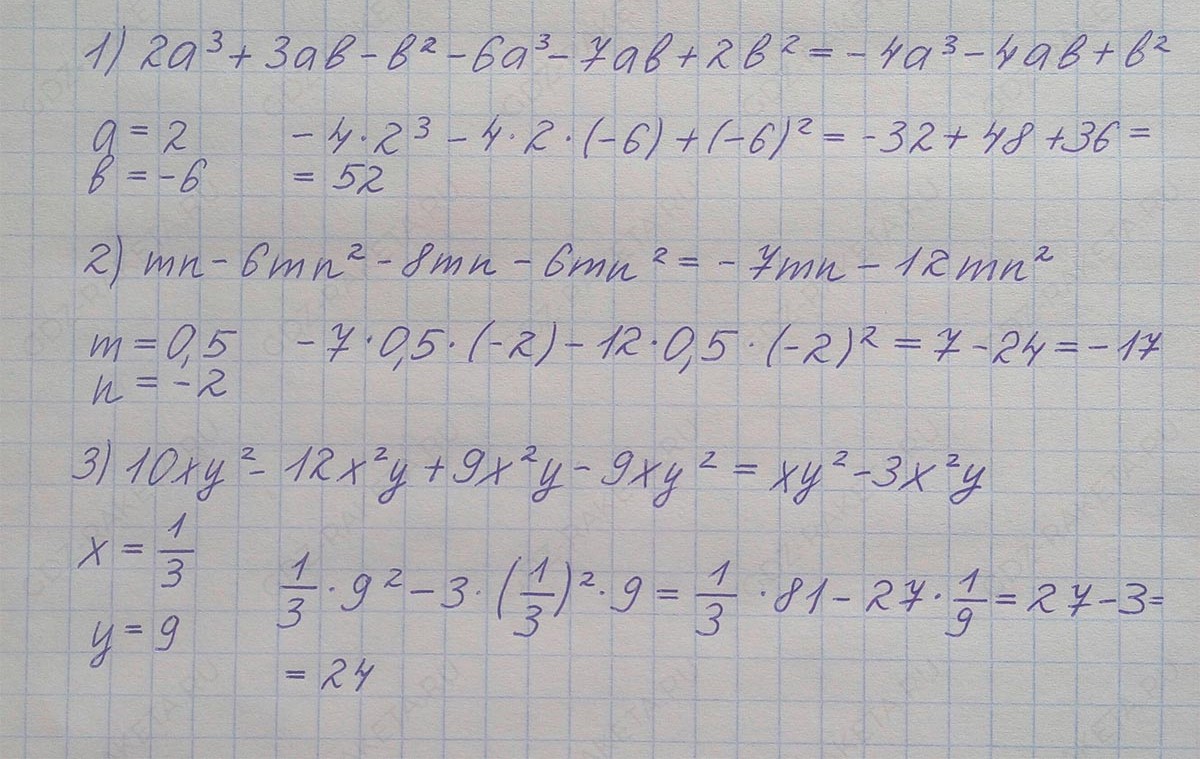 1) 2a³ + 3ab - b² - 6a³ - 7ab + 2b² = -4a³ - 4ab + b²
a = 2 -4·2³ - 4·2·(-6) + (-6)² = -32 + 48 + 36 =
b = -6 = 52
2) mn - 6mn² - 8mn - 6mn² = -7mn - 12mn²
m = 0,5 -7·0,5·(-2) - 12·0,5·(-2)² = 7 - 24 = -17
n = -2
3) 10xy² - 12x²y + 9x²y - 9xy² = xy² - 3x²y
x = 1/3
1/3·9² - 3·(1/3)²·9 = 1/3·81 - 27·1/9 = 27 - 3 =
y = 9
= 24